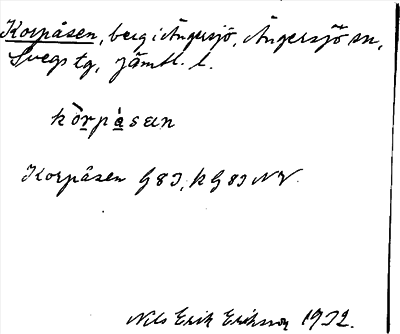 Korpåsen, berg i Ängersjö, Ängersjö sn,
Svegs tg, Jämtl. l.
kòrpåsen
Korpåsen G 8I, k G 8I NV.
Nils Erik Eriksson 1932.